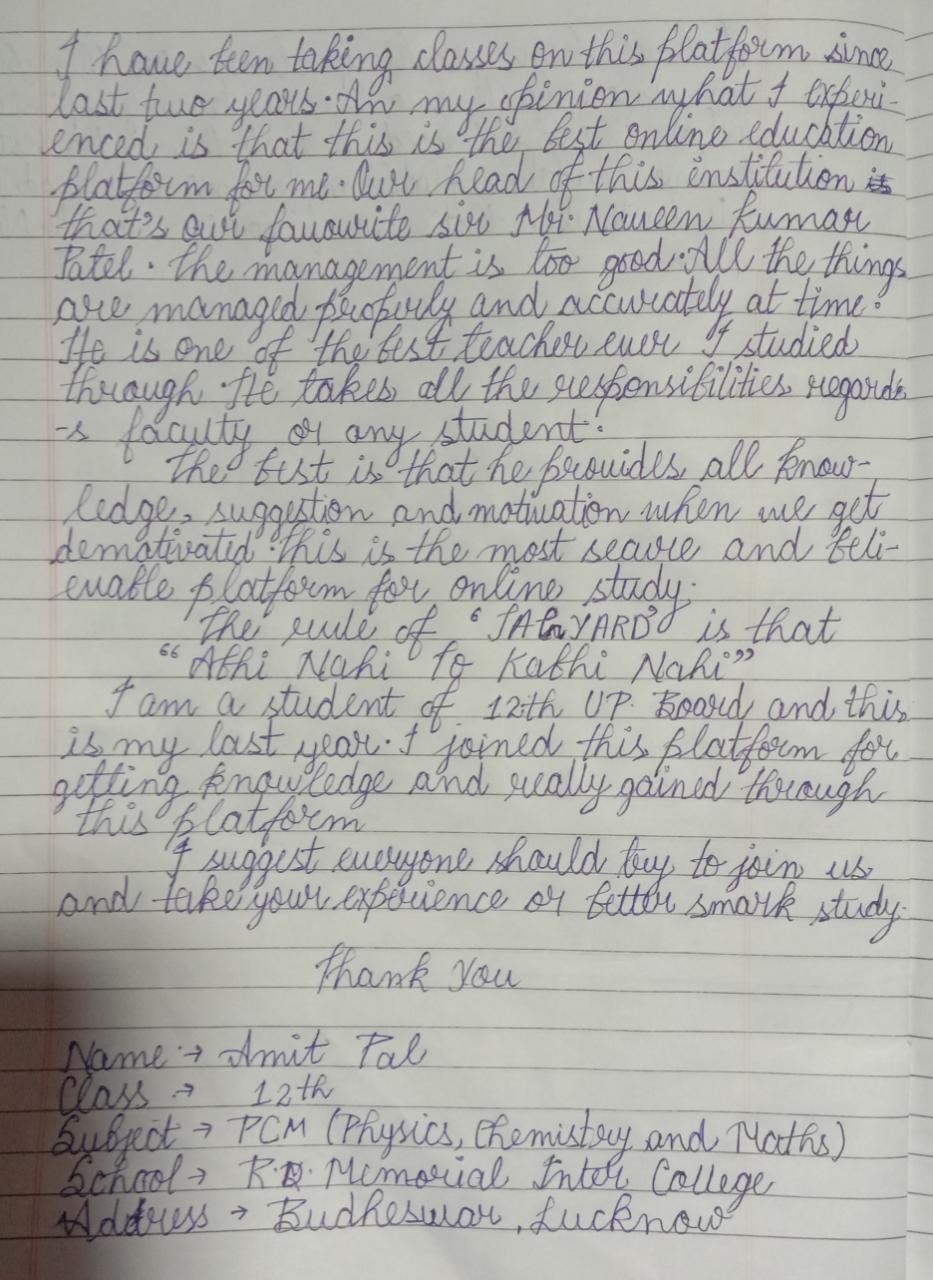 I have been taking classes on this platform since
last two years. In my opinion what I experi-
enced is that this is the best online education
platform for me. Our head of this institution is
that's our favourite sir Mr. Naveen Kumar
Patel. The management is too good. All the things
are managed properly and accurately at time.
He is one of the best teacher ever I studied
through. He takes all the responsibilities regardi
-s faculty or any student.
The best is that he provides all know-
ledge, suggestion and motivation when we get
demotivated. This is the most secure and beli-
evable platform for online study.
The rule of "JAhYARD" is that
"Abhi Nahi To Kabhi Nahi"
I am a student of 12th UP. Board and this
is my last year. I joined this platform for
getting knowledge and really gained through
this platform
I suggest everyone should try to join us
and take your experience or better smark study.
Thank You
Name → Amit Pal
Class → 12th
Subject → PCM (Physics, Chemistry and Maths)
School → R.D. Memorial Inter College
Address → Budheswar, Lucknow